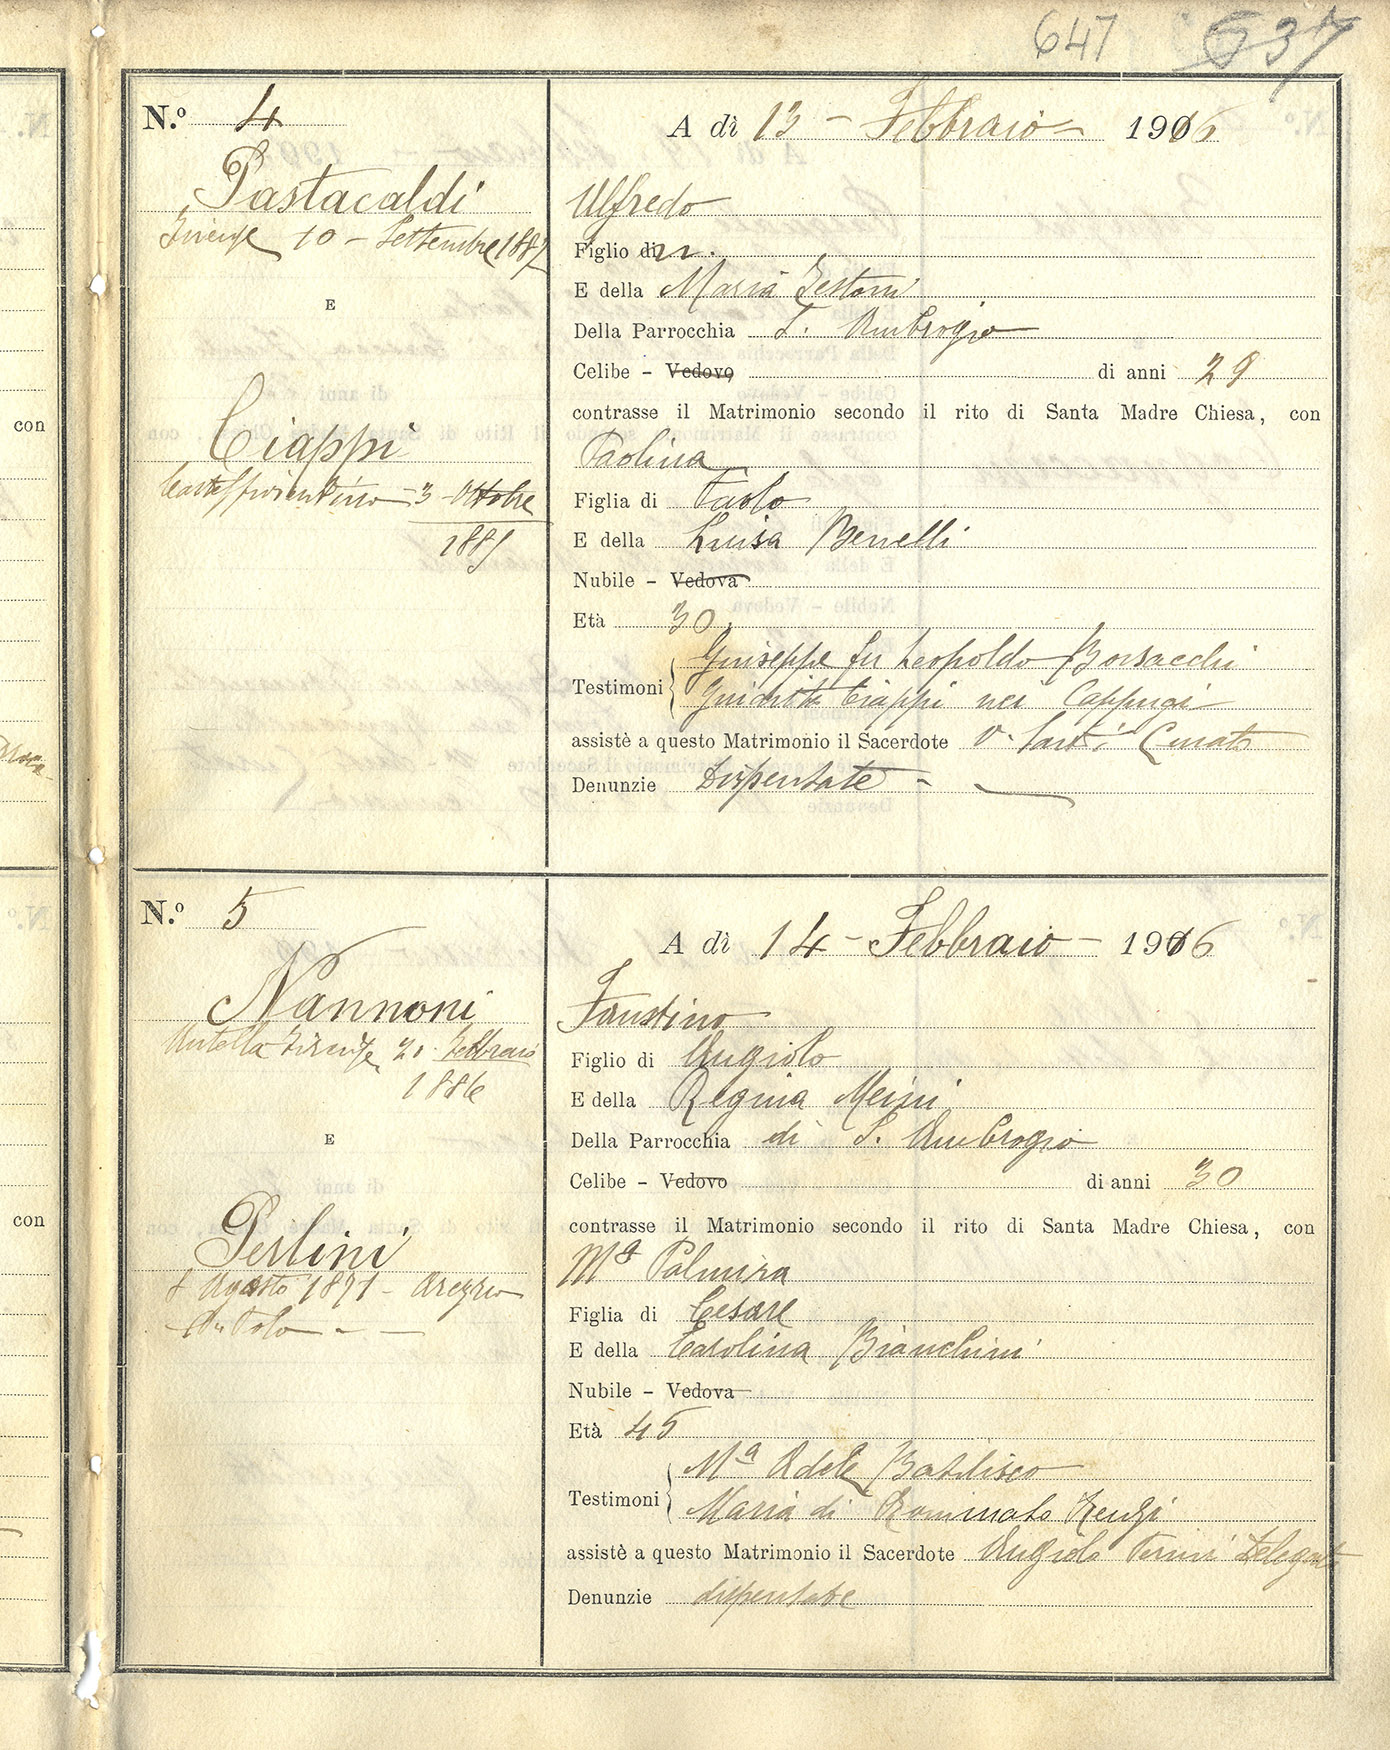 647 637
N.º 4
Pastacaldi
Firenze 10 - Settembre 1887
E
Ciappi
Castelfiorentino 3 - Ottobre
1885
A dì 13 - Febbraio - 1916
Ulfredo
Figlio di n. n.
E della Maria Testoni
Della Parrocchia S. Ambrogio
Celibe - Vedovo di anni 29
contrasse il Matrimonio secondo il rito di Santa Madre Chiesa, con
Paolina
Figlia di Paolo
E della Luisa Benelli
Nubile - Vedova
Età 30
Testimoni Giuseppe fu Leopoldo Borsacchi
Giuditta Ciappi nei Cappugi
assistè a questo Matrimonio il Sacerdote Curato
Denunzie Dispensate -
N.º 5
Nannoni
Antella Firenze 21 Febbraio
1886
E
Perlini
8 Agosto 1871 - Arezzo
A dì 14 - Febbraio - 1916
Faustino
Figlio di Angiolo
E della Regina Meini
Della Parrocchia di S. Ambrogio
Celibe - Vedovo di anni 30
contrasse il Matrimonio secondo il rito di Santa Madre Chiesa, con
Mª Palmira
Figlia di Cesare
E della Carolina Bianchini
Nubile - Vedova
Età 45
Testimoni Mª Adele Basilisco
Maria di Renzi
assistè a questo Matrimonio il Sacerdote Angiolo Delegato
Denunzie dispensate
con
con